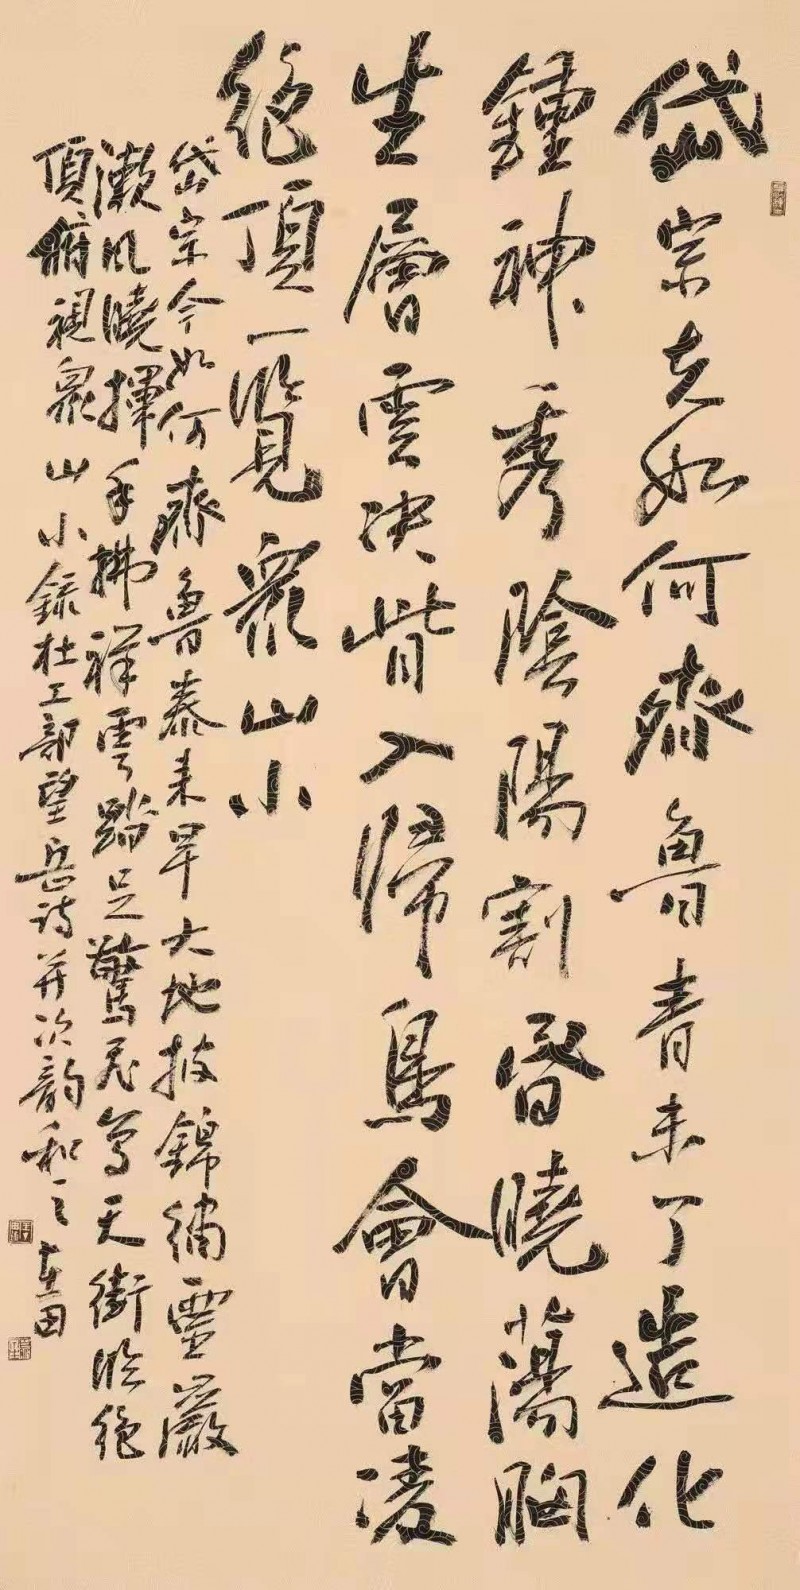 岱宗夫如何齊魯青未了造化
鍾神秀陰陽割昏曉蕩胸
生層雲決眥入歸鳥會當凌
絕頂一覽衆山小
岱宗今如何齊魯泰來早大地披錦繡靈巖
漱風曉揮手拂祥雲踏足驚飛鳥天街臨絕
頂俯視衆山小錄杜工部望岳詩并次韵和之